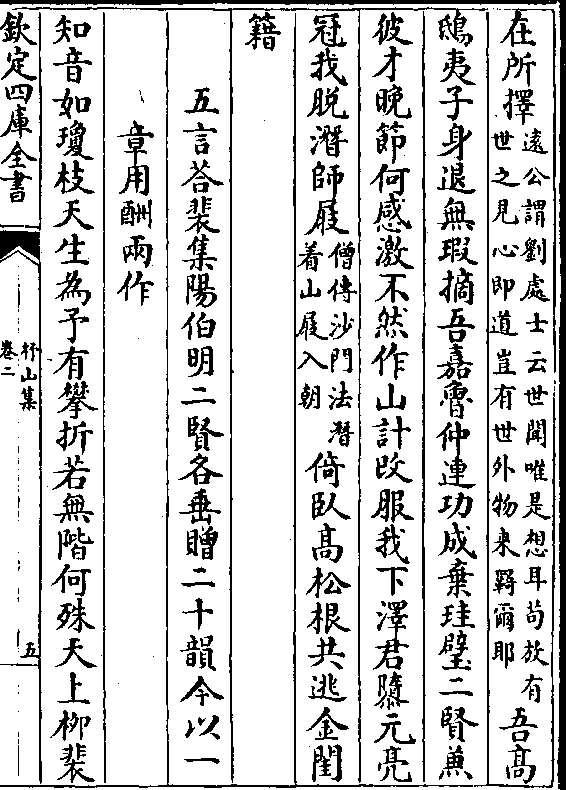 在所擇遠公謂劉處士云世聞唯是想耳苟放有
世之見心即道豈有世外物來羇爾耶吾高
鴟夷子身退無瑕摘吾嘉魯仲連功成棄珪璧二賢兼
彼才晚節何感激不然作山計改服我下澤君隳元亮
冠我脱潛師屐僧傳沙門法潛
着山屐入朝倚臥高松根共逃金閨
籍
五言荅裴集陽伯明二賢各垂贈二十韻今以一
章用酬兩作
知音如瓊枝天生為予有攀折若無階何殊天上柳裴
欽定四庫全書
杼山集
卷二
五